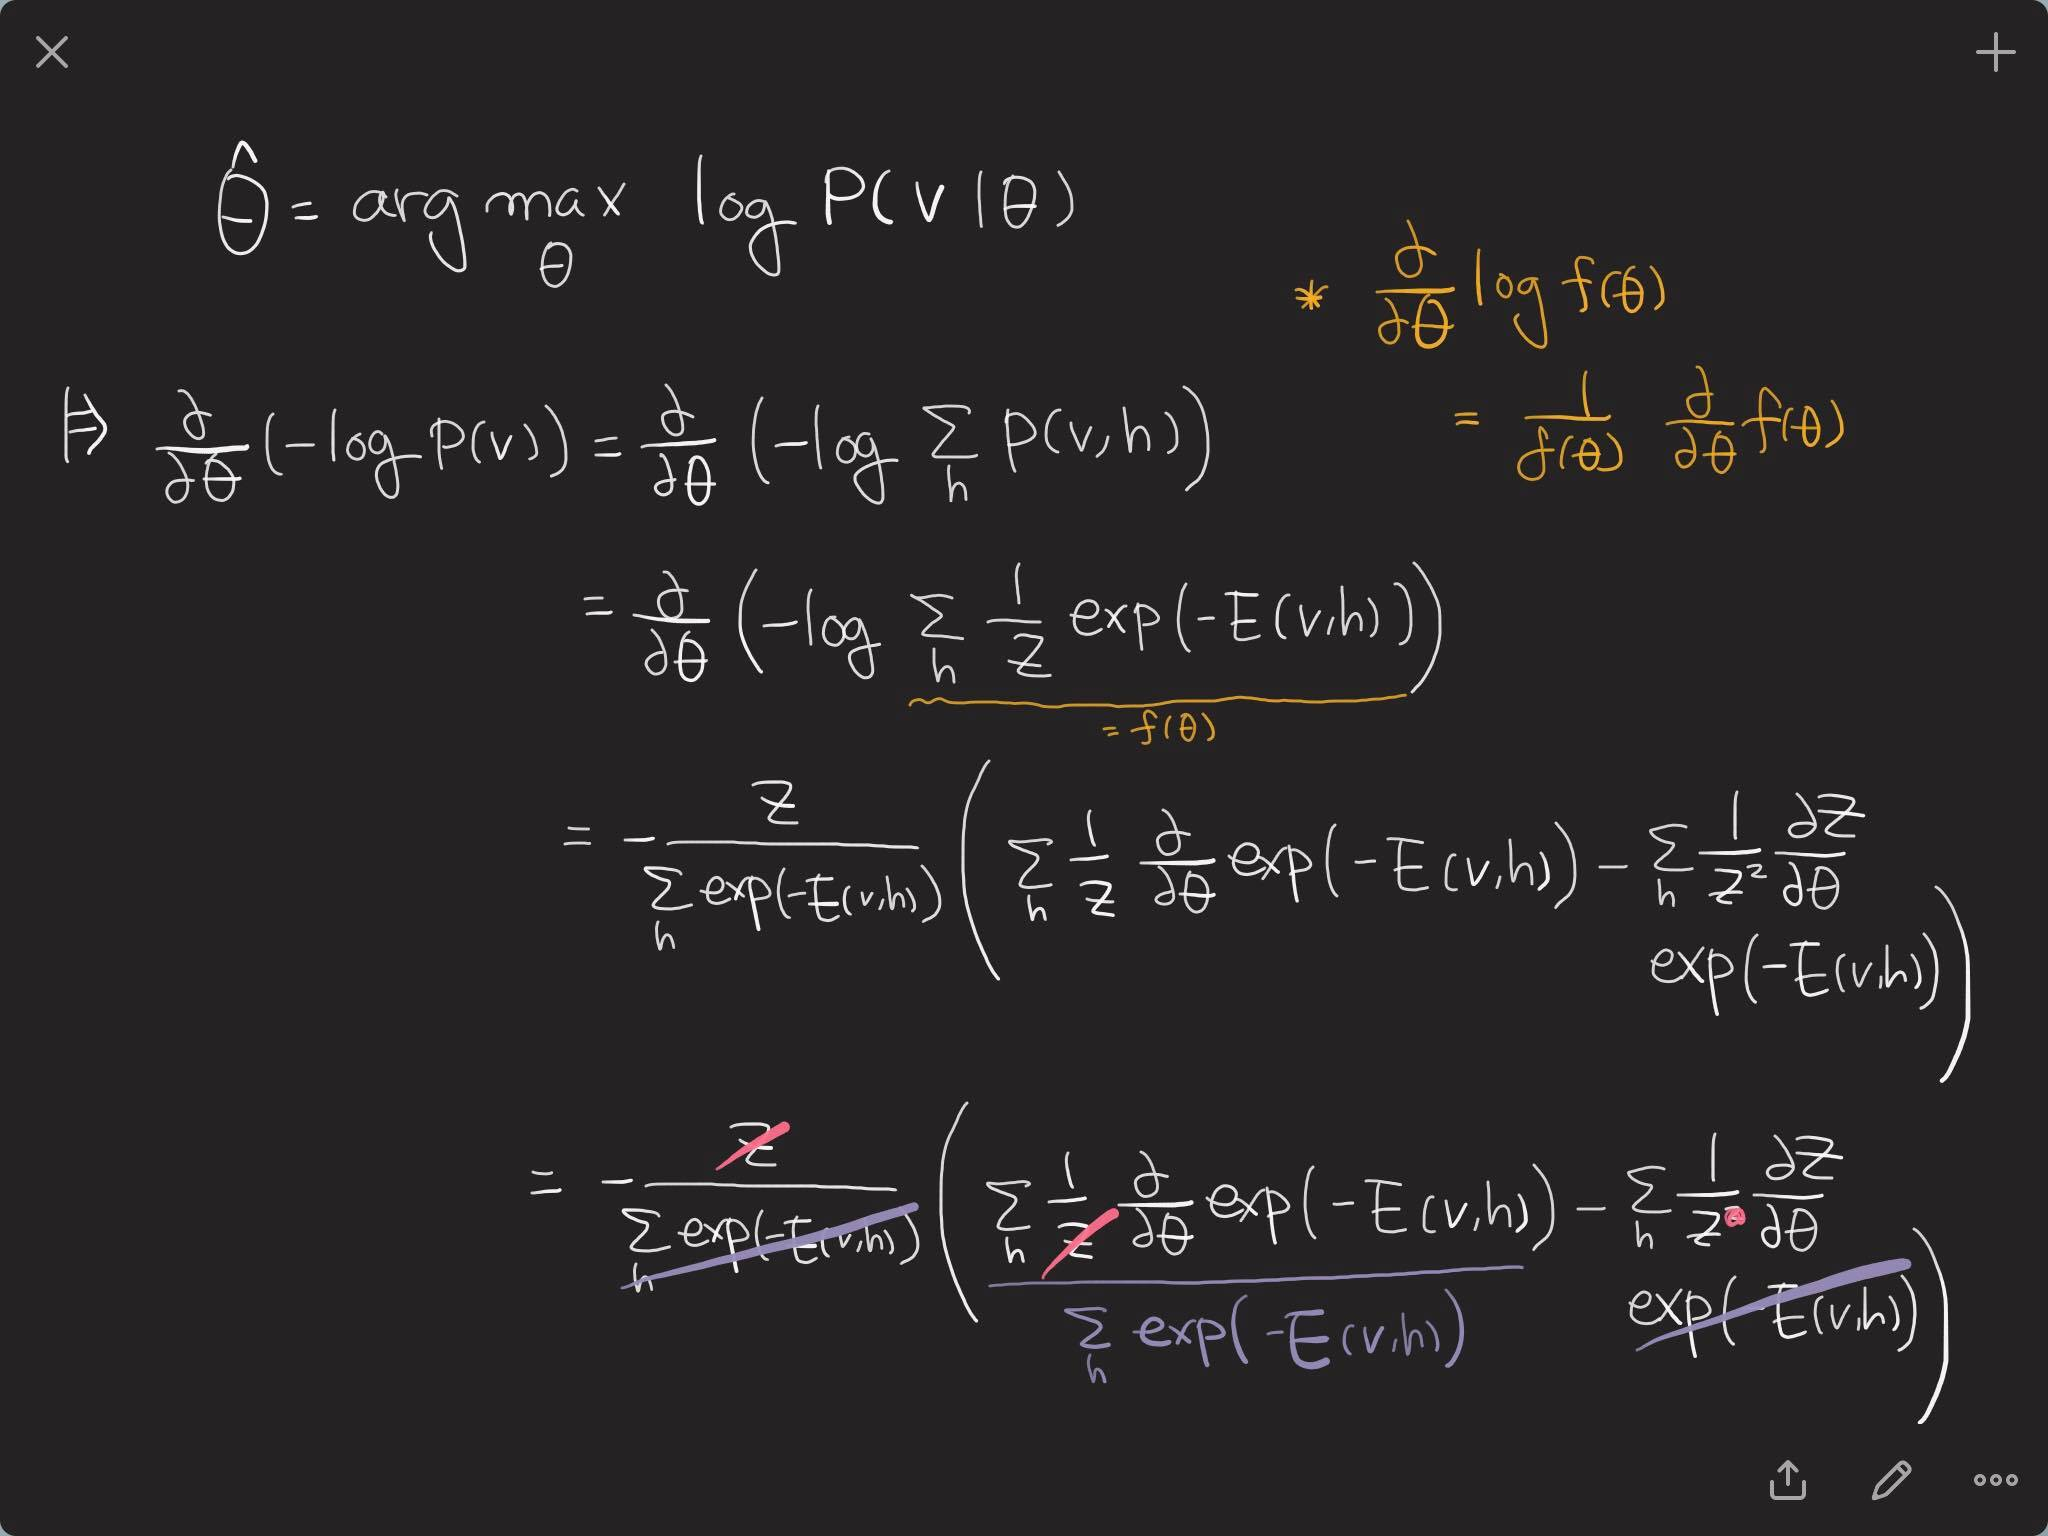 θ̂ = arg max_θ log P(v|θ)
* ∂/∂θ log f(θ)
= 1/f(θ) ∂/∂θ f(θ)
⊨> ∂/∂θ (-log P(v)) = ∂/∂θ (-log Σ_h P(v,h))
= ∂/∂θ (-log Σ_h 1/Z exp(-E(v,h)))
= f(θ)
= - Z / Σ_h exp(-E(v,h)) ( Σ_h 1/Z ∂/∂θ exp(-E(v,h)) - Σ_h 1/Z² ∂Z/∂θ
exp(-E(v,h)) )
= - Z / Σ_h exp(-E(v,h)) ( Σ_h 1/Z ∂/∂θ exp(-E(v,h)) - Σ_h 1/Z² ∂Z/∂θ
Σ_h exp(-E(v,h))
exp(-E(v,h)) )